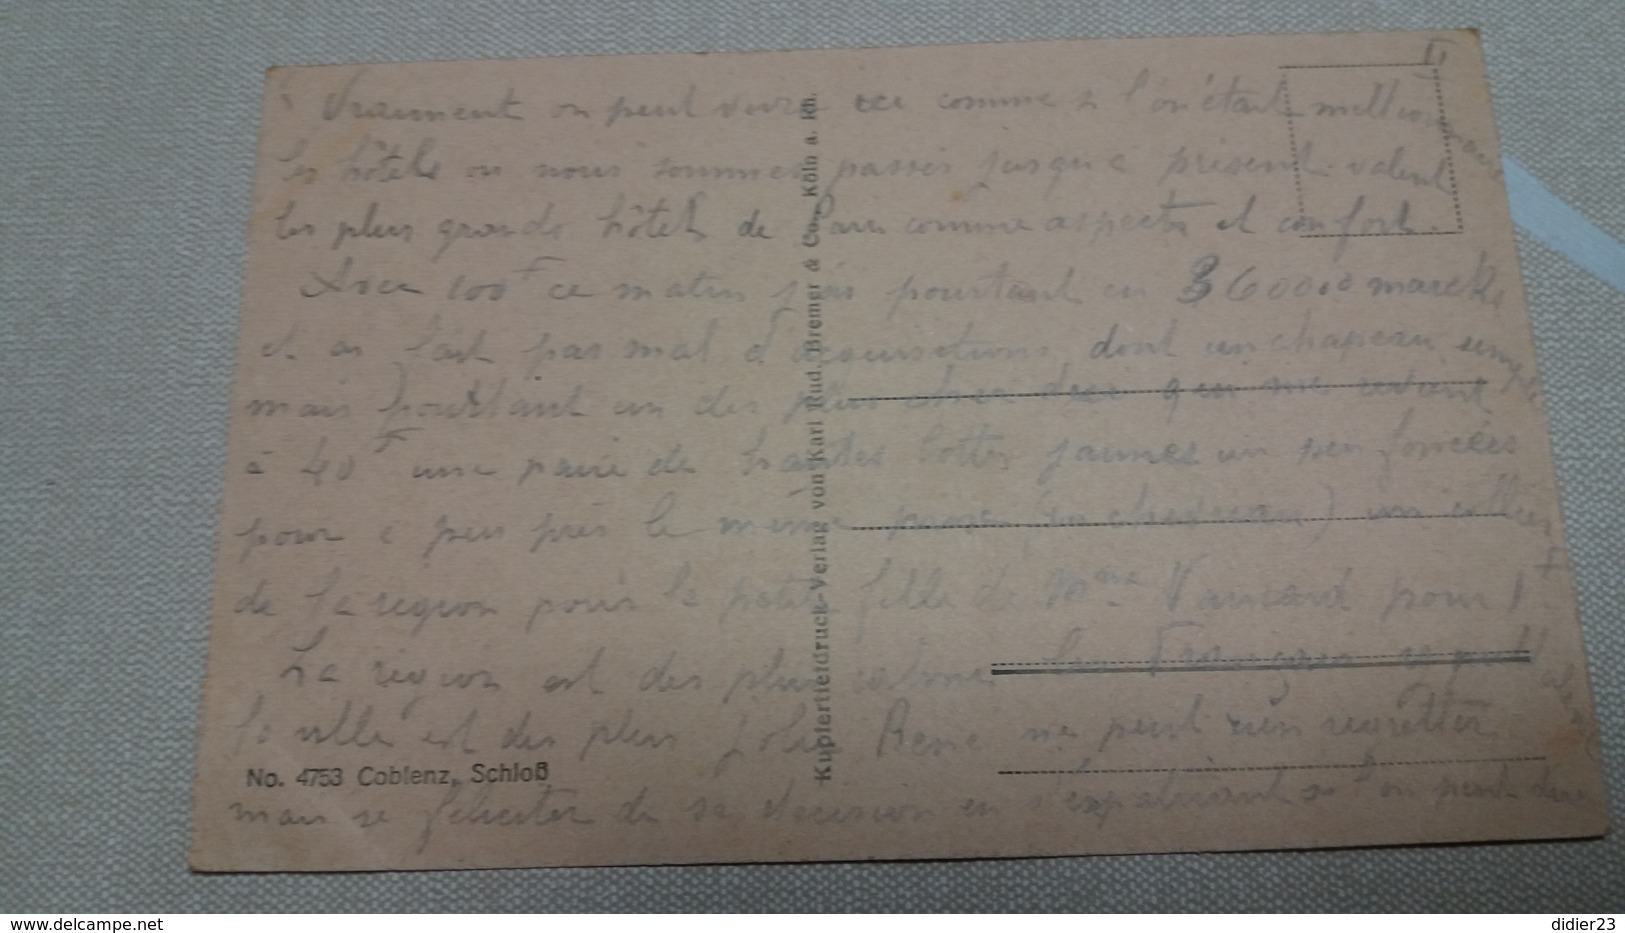 II
Vraiment on peut vivre ici comme si l'on était millionnaire
les hôtels ou nous sommes passés jusqu'à présent valent
les plus grands hôtels de Paris comme aspects et confort.
Avec 100 F ce matin j'ai pourtant eu 360000 marcks
et on fait pas mal d'acquisitions dont un chapeau
mais pourtant un des plus cher qui me revient
à 40 F une paire de hautes bottes jaunes un peu foncées
pour à peu près le même prix (en chevreau) un collier
de la région pour la petite fille de Mme pour 1 F
La région est des plus calme les Français y
la ville est des plus jolie René ne peut rien regretter
mais se féliciter de sa décision en s'expatriant si l'on peut dire
No. 4753 Coblenz, Schloß
Kupfertiefdruck-Verlag von Karl Rud. Bremer & Co., Köln a. Rh.
www.delcampe.net
didier23